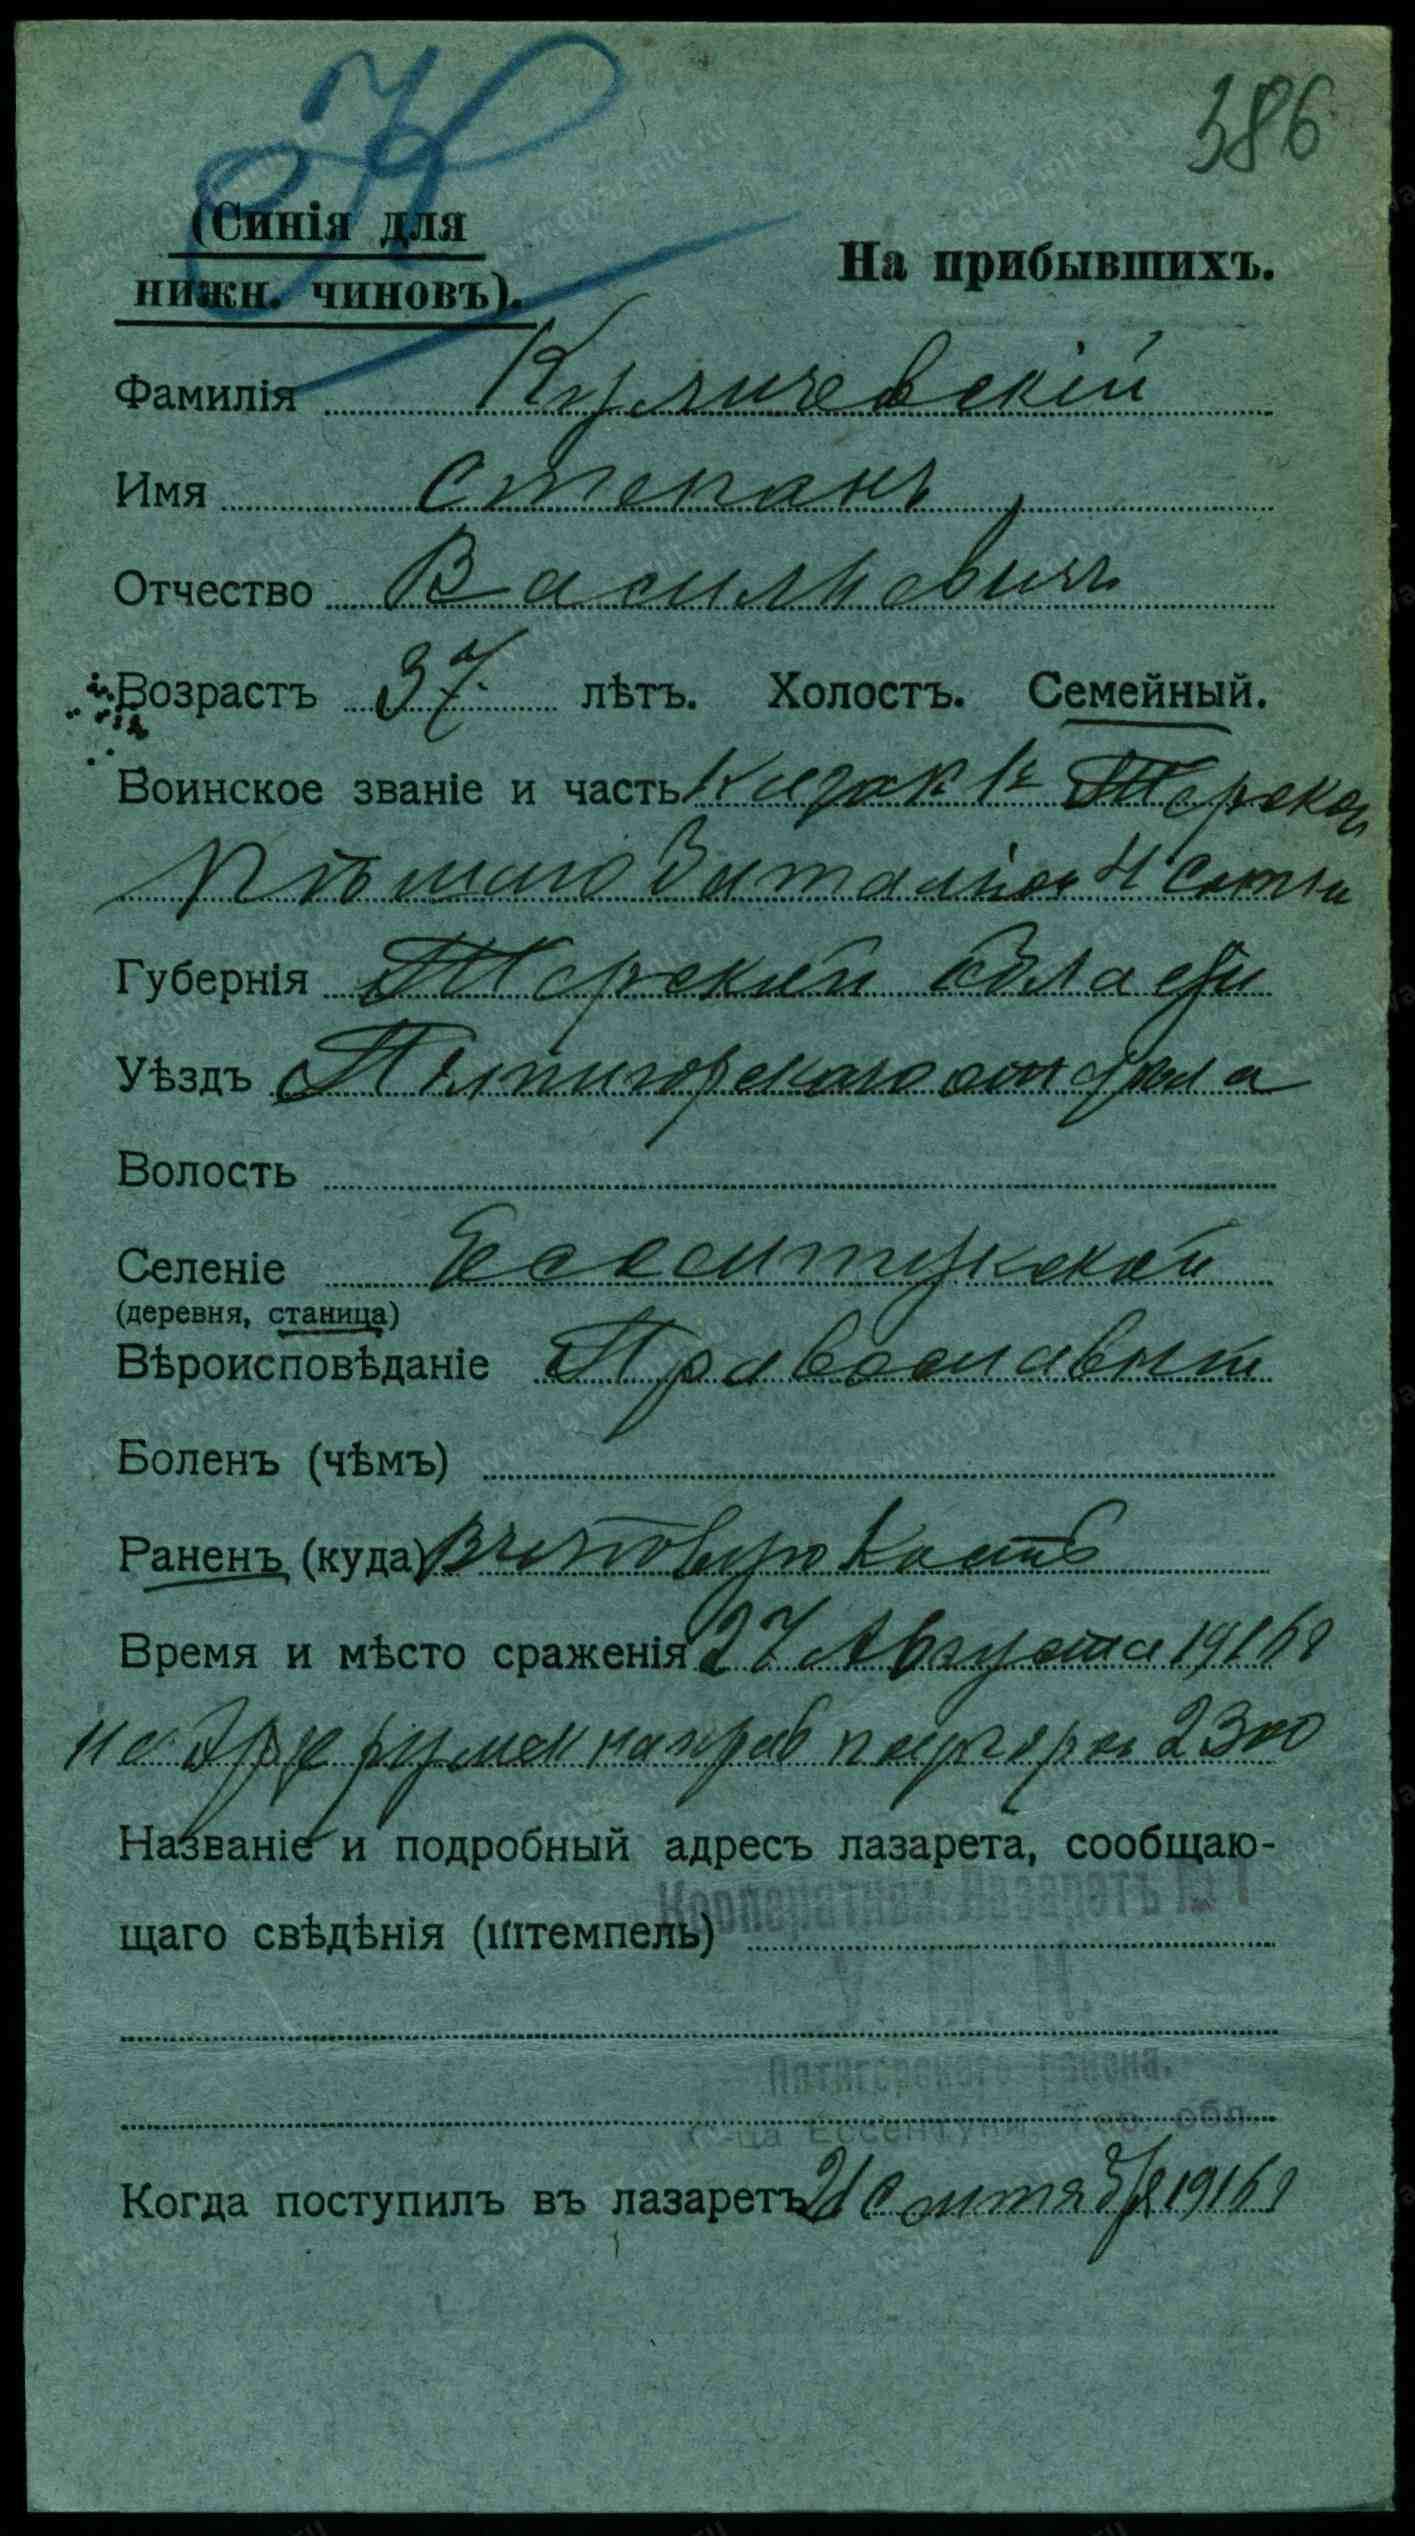 К
386
(Синія для
нижн. чиновъ).
На прибывшихъ.
Фамилія Куличевскій
Имя Степанъ
Отчество Васильевичъ
Возрастъ 37 лѣтъ. Холостъ. Семейный.
Воинское званіе и часть Казак 1го Терскаго
Пѣшаго Баталіон 4 Сотни
Губернія Терской Области
Уѣздъ Пятигорскаго отдѣла
Волость
Селеніе Ессентукской
(деревня, станица)
Вѣроисповѣданіе Православный
Боленъ (чѣмъ)
Раненъ (куда) кость
Время и мѣсто сраженія 27 Августа 1916 г
направ 2300
Названіе и подробный адресъ лазарета, сообщаю-
щаго свѣдѣнія (штемпель)
Кооператив. Лазаретъ № 1
Пятигорскаго района.
Ессентуки, Тер. обл.
Когда поступилъ въ лазаретъ 21 Сентября 1916 г